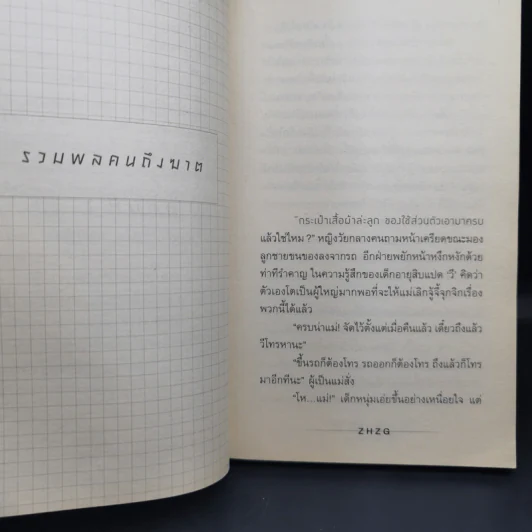 รวมพลคนถึงฆาต
"กระเป๋าเสื้อผ้าล่ะลูก ของใช้ส่วนตัวเอามาครบ
แล้วใช่ไหม ?" หญิงวัยกลางคนถามหน้าเครียดขณะมอง
ลูกชายขนของลงจากรถ อีกฝ่ายพยักหน้าหงึกหงักด้วย
ท่าทีรำคาญ ในความรู้สึกของเด็กอายุสิบแปด 'วี' คิดว่า
ตัวเองโตเป็นผู้ใหญ่มากพอที่จะให้แม่เลิกจู้จี้จุกจิกเรื่อง
พวกนี้ได้แล้ว
"ครบน่าแม่! จัดไว้ตั้งแต่เมื่อคืนแล้ว เดี๋ยวถึงแล้ว
วีโทรหานะ"
"ขึ้นรถก็ต้องโทร รถออกก็ต้องโทร ถึงแล้วก็โทร
มาอีกทีนะ" ผู้เป็นแม่สั่ง
"โห...แม่!" เด็กหนุ่มเอ่ยขึ้นอย่างเหนื่อยใจ แต่
ZHZG